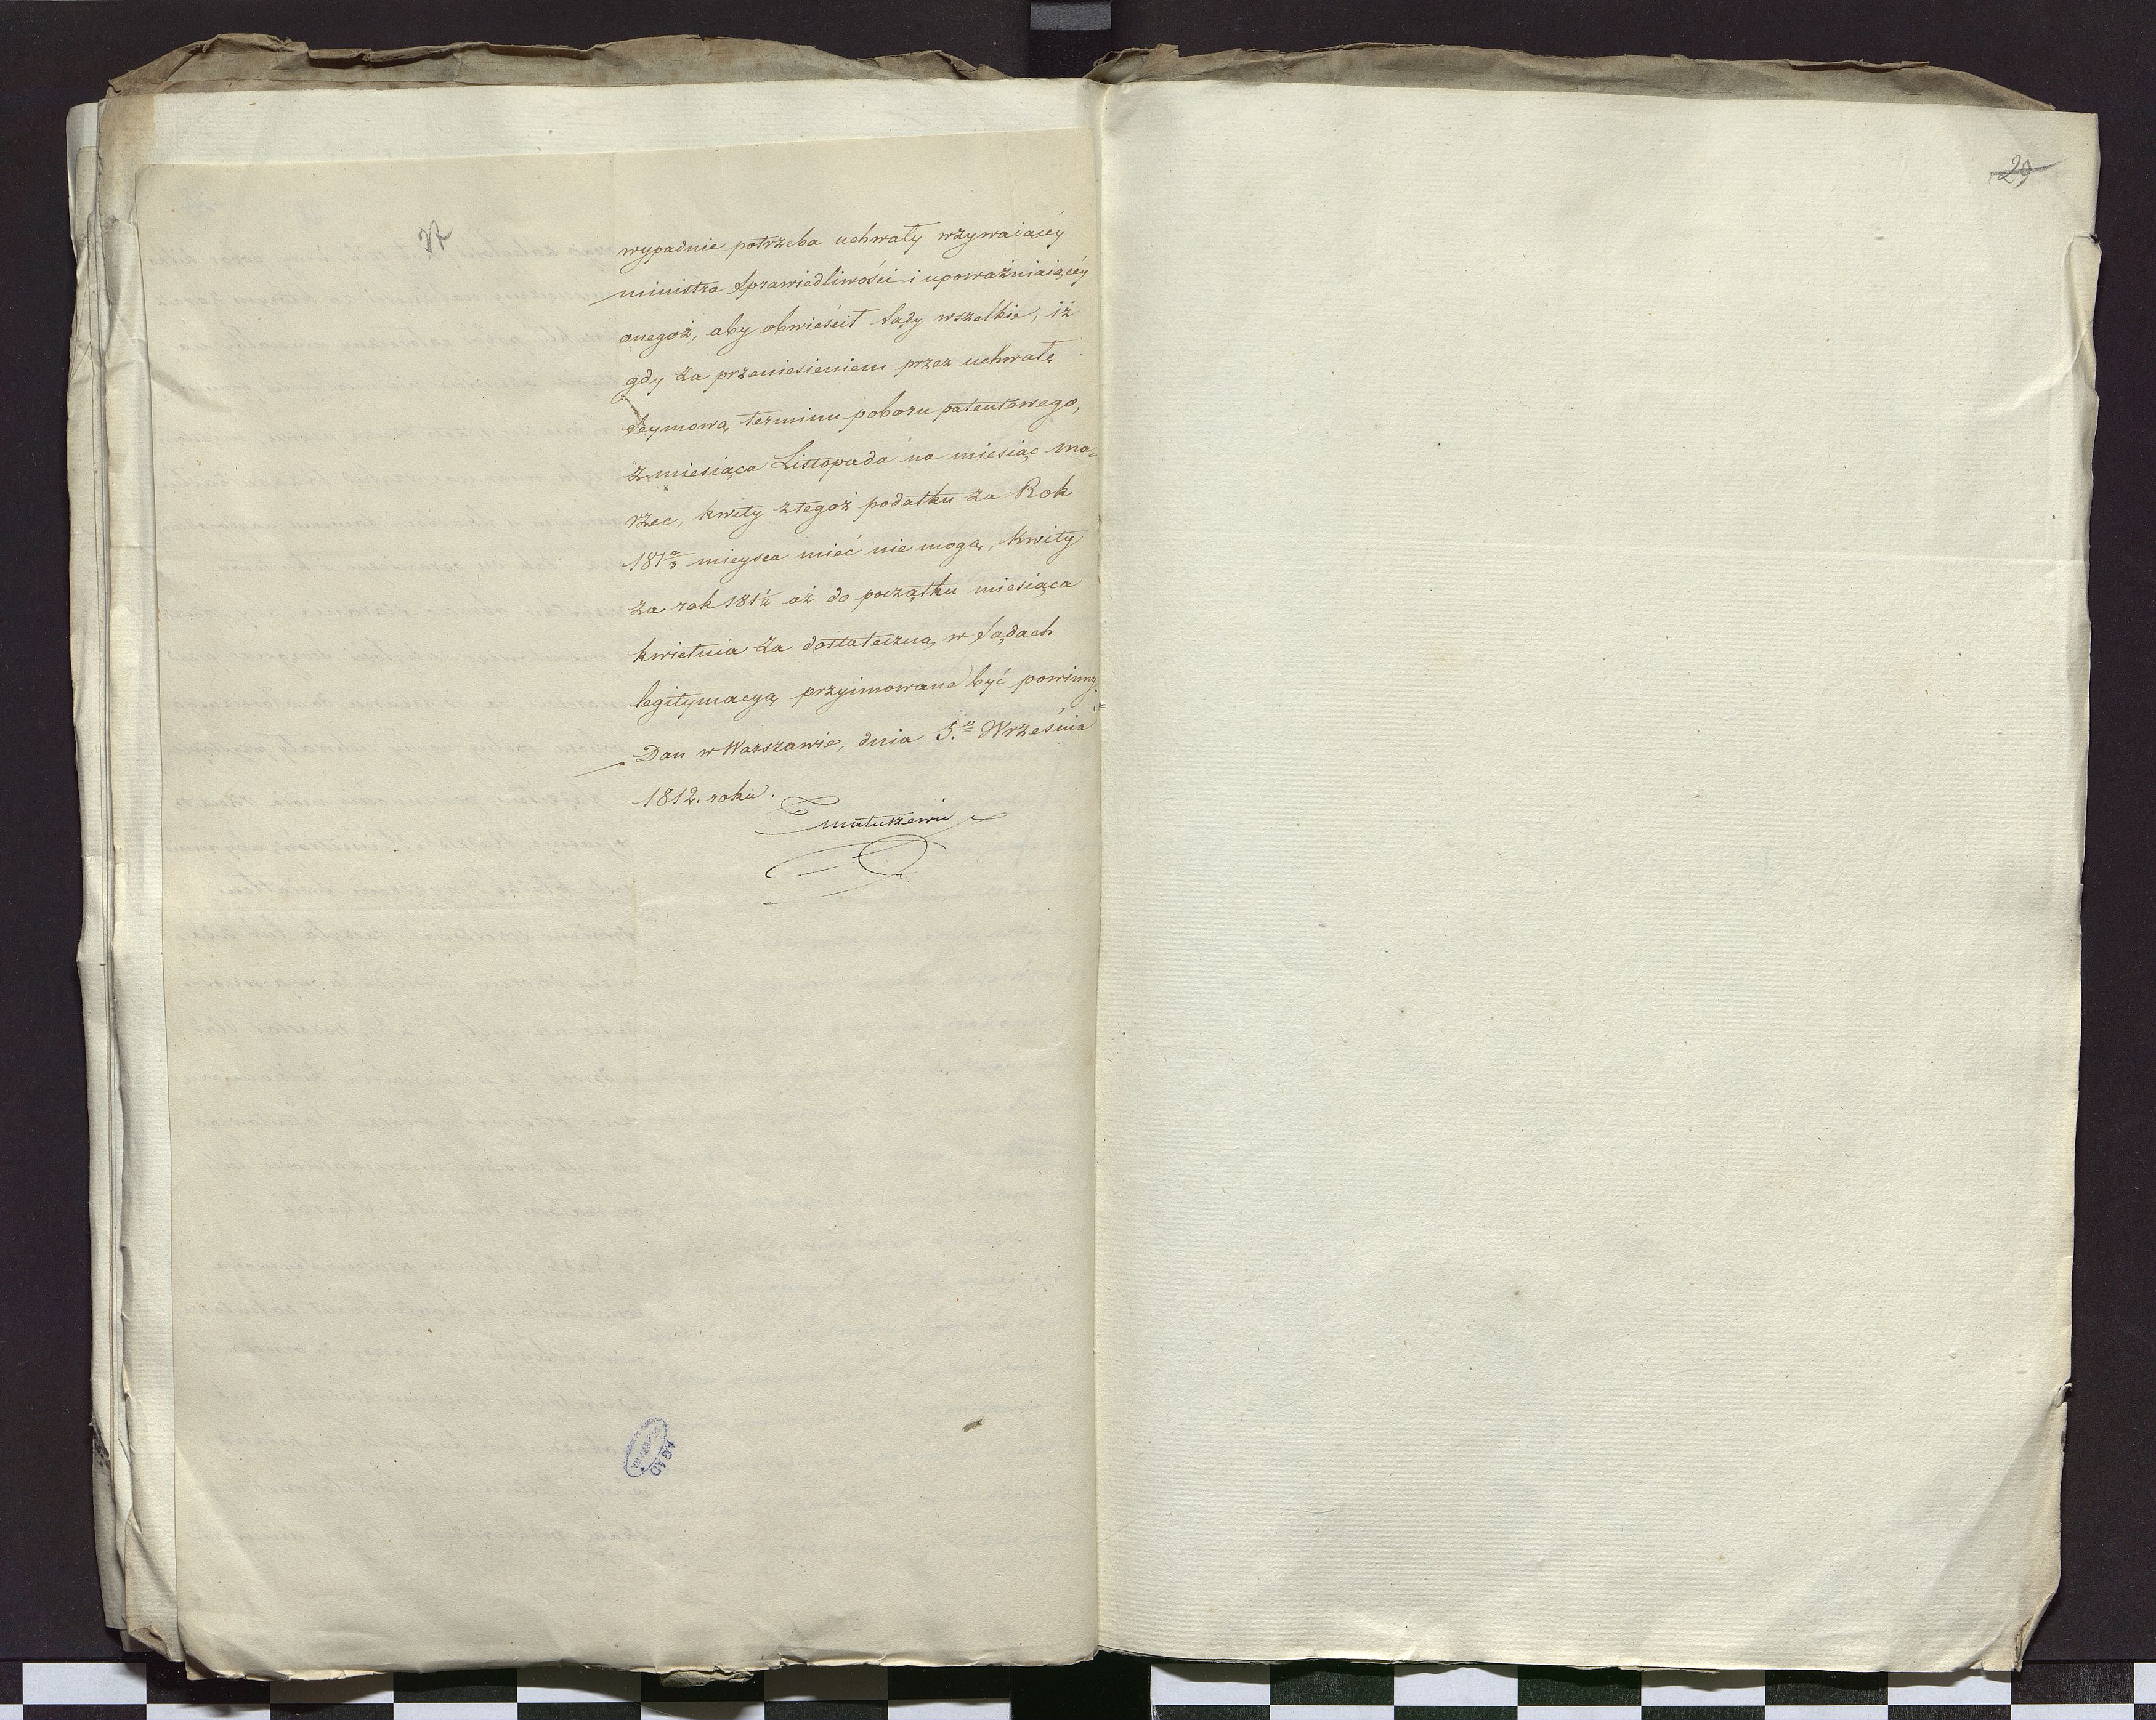 wypadnie potrzeba uchwały wzywaiącéy
ministra Sprawiedliwości i upoważniaiącéy
onegoż, aby obwieścił Sądy wszelkie, iż
gdy za przeniesieniem przez uchwałę
Seymową terminu poboru patentowego,
z miesiąca Listopada na miesiąc ma-
rzec, kwity z tegoż podatku za Rok
181 2/3 mieysca mieć nie mogą, kwity
za rok 181 1/2 aż do początku miesiąca
kwietnia za dostateczną w Sądach
legitymacyą przyimowane być powinny.
Dan w Warszawie, dnia 5. Września
1812. roku.
Matuszewic
29
AGAD